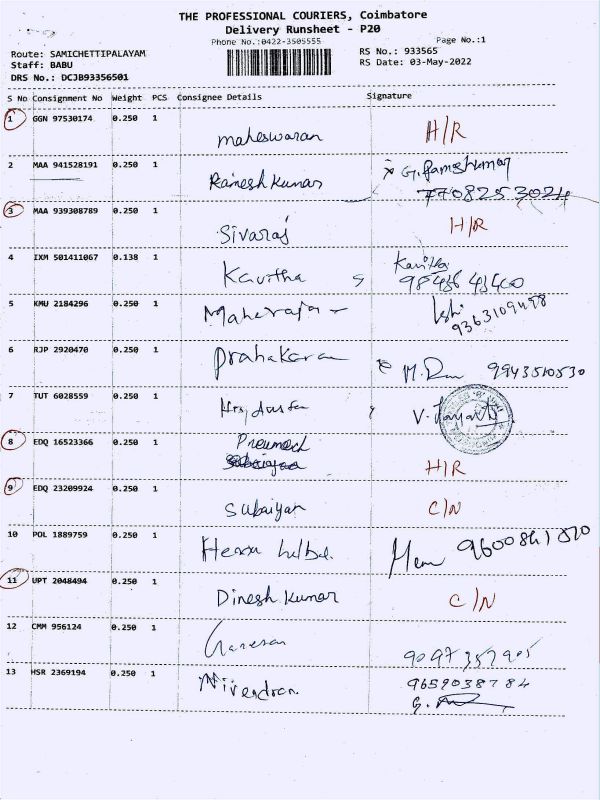 THE PROFESSIONAL COURIERS, Coimbatore
Delivery Runsheet - P20
Phone No.:0422-3505555
Page No.:1
Route: SAMICHETTIPALAYAM
RS No.: 933565
Staff: BABU
RS Date: 03-May-2022
DRS No.: DCJB93356501
S No Consignment No Weight PCS Consignee Details Signature
1 GGN 97530174 0.250 1 maheswaran H/R
2 MAA 941528191 0.250 1 Ramesh Kumar G. Rameshkumar
7708253024
3 MAA 939308789 0.250 1 Sivaraj H/R
4 IXM 501411067 0.138 1 Kavitha Kavitha
98436 43400
5 KMU 2184296 0.250 1 Maharaja
9363109498
6 RJP 2920470 0.250 1 Prahakaran M. 9943510530
7 TUT 6028559 0.250 1 V.
8 EDQ 16523366 0.250 1 H/R
9 EDQ 23209924 0.250 1 Subaiyan C/N
10 POL 1889759 0.250 1 Hem 9600841820
11 UPT 2048494 0.250 1 Dinesh Kumar C/N
12 CMM 956124 0.250 1 Ganesan 9097357905
13 HSR 2369194 0.250 1 Nivendran 9659038784
G.